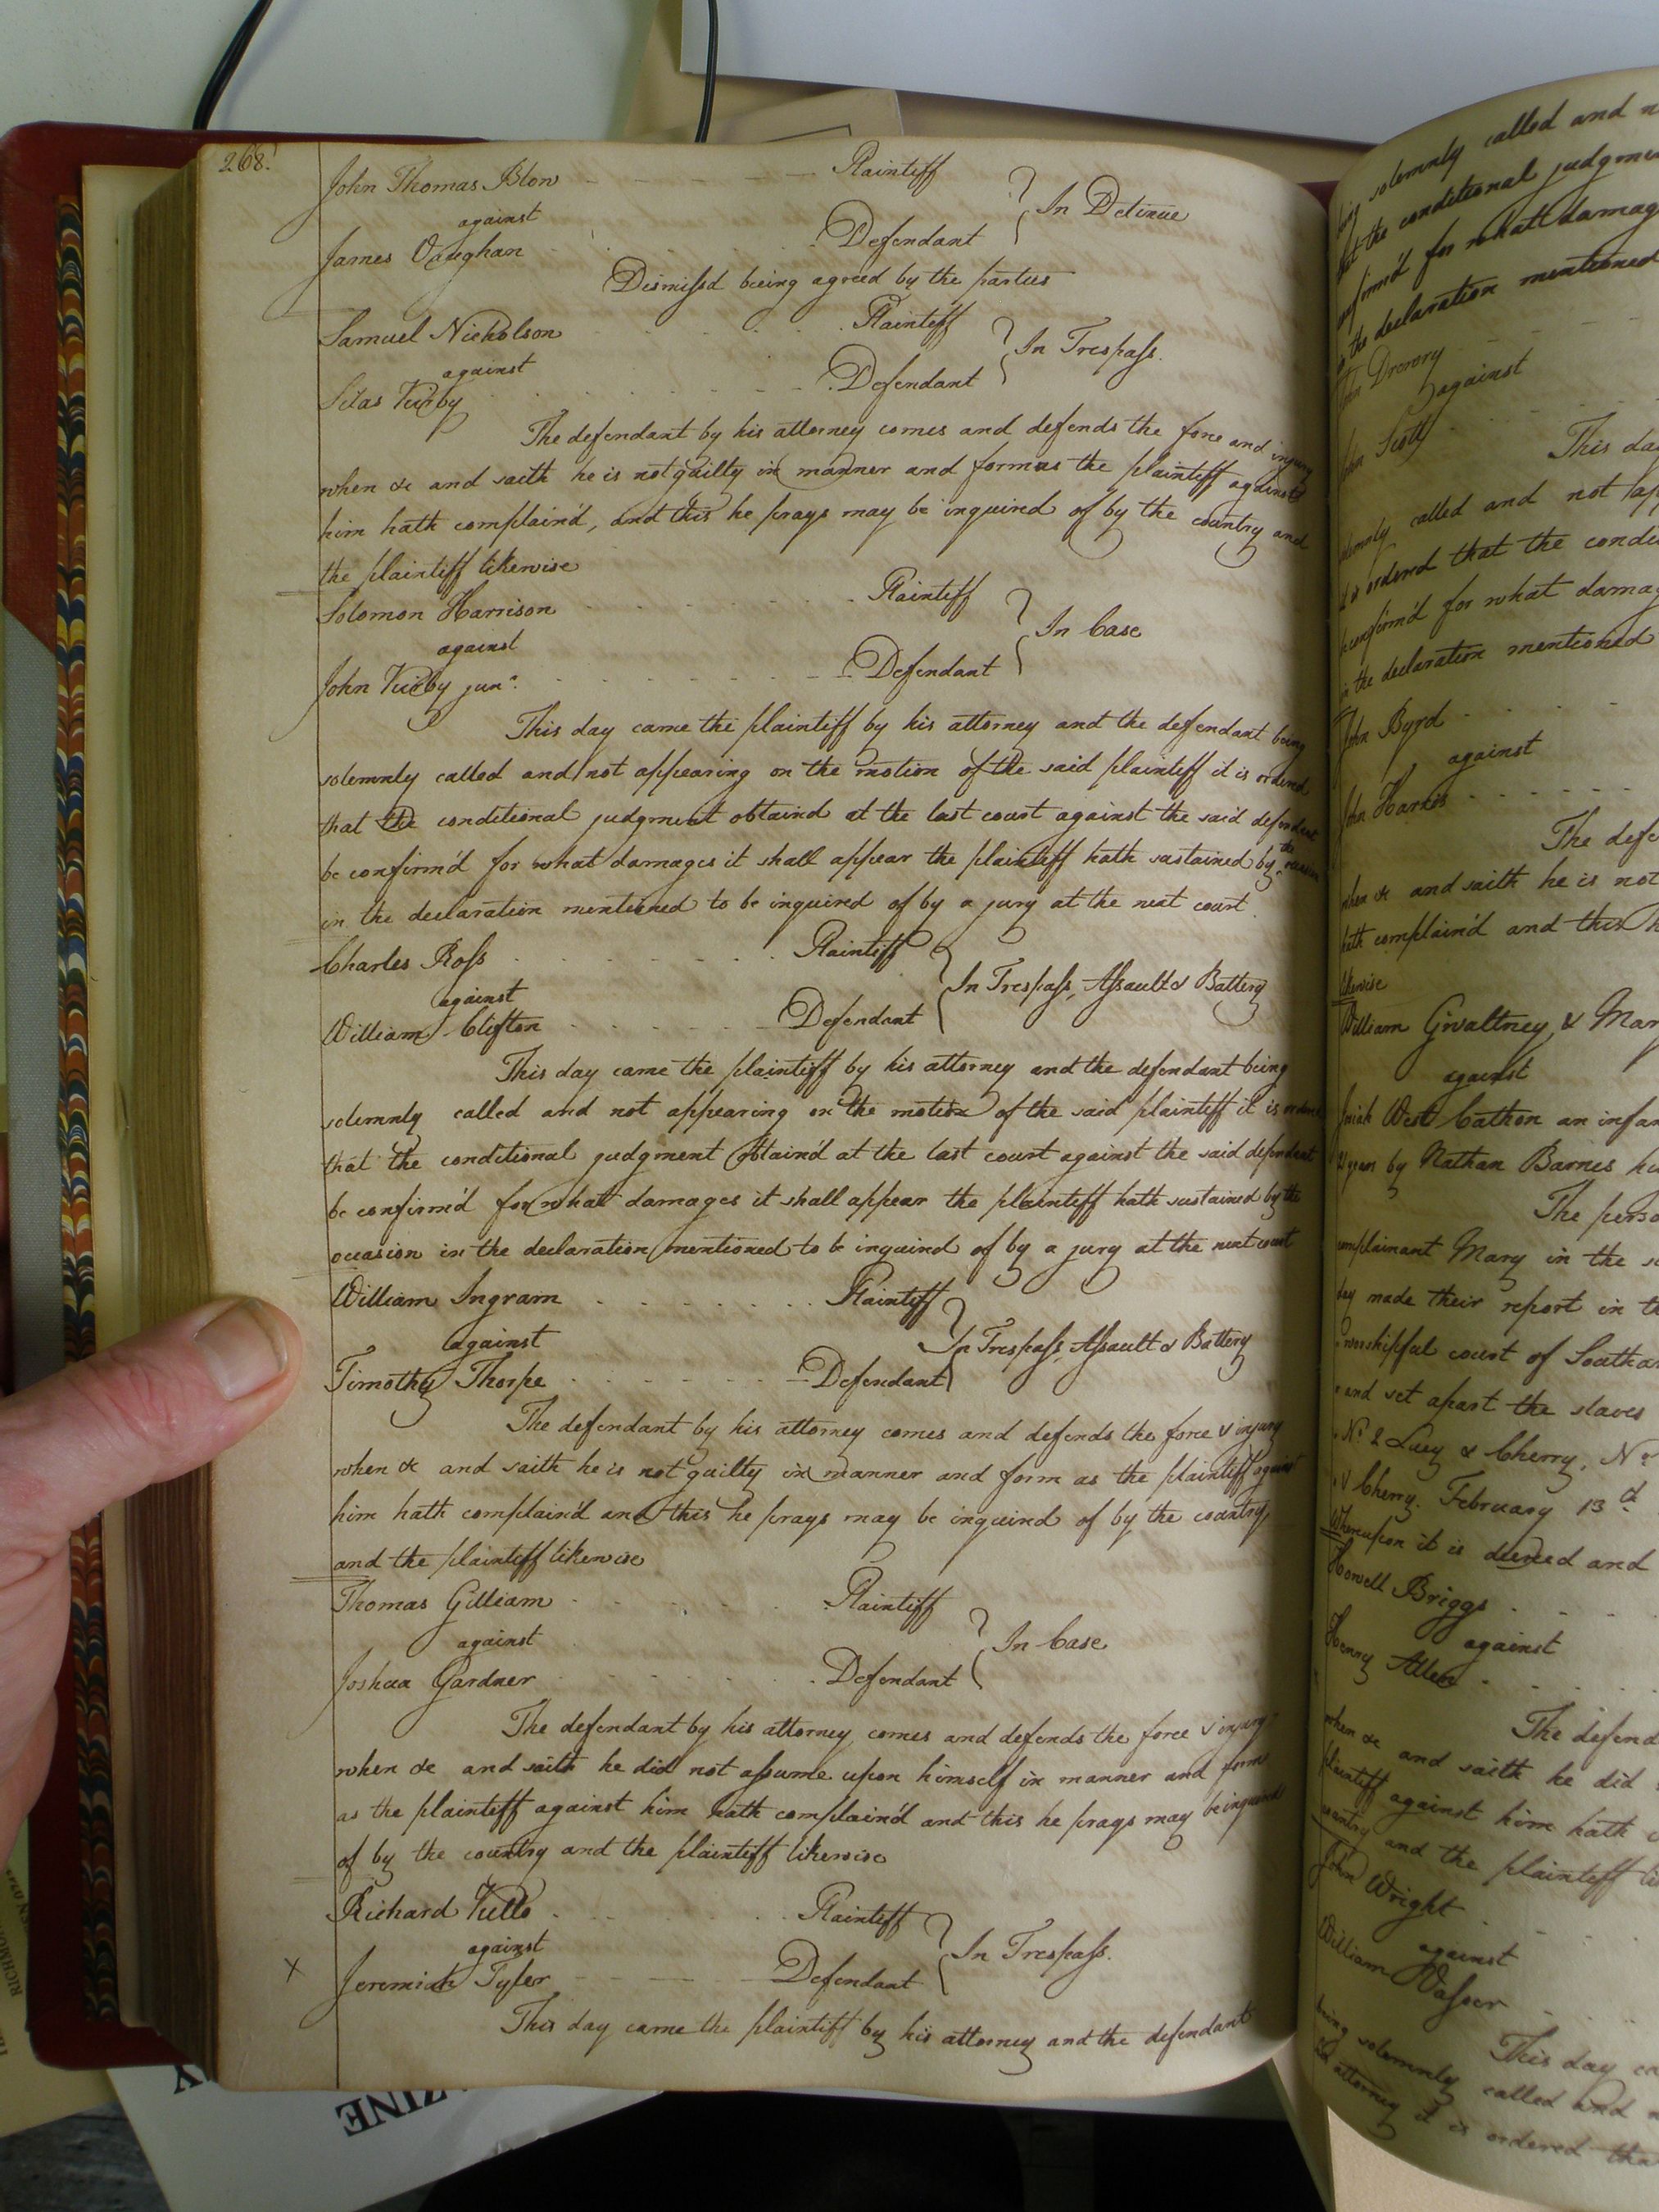 268.
John Thomas Blow - - - - - Plaintiff
against } In Detinue
James Vaughan - - - - - Defendant
Dismissd being agreed by the parties
Samuel Nicholson - - - - Plaintiff
against } In Trespass.
Silas Kirby - - - - - Defendant
The defendant by his attorney comes and defends the force and injury
when &c and saith he is not guilty in manner and form as the plaintiff against
him hath complain'd, and this he prays may be inquired of by the country and
the plaintiff likewise
Solomon Harrison - - - - Plaintiff
against } In Case
John Kirby junr. - - - - - Defendant
This day came the plaintiff by his attorney and the defendant being
solemnly called and not appearing on the motion of the said plaintiff it is ordered
that the conditional judgment obtaind at the last court against the said defendant
be confirm'd for what damages it shall appear the plaintiff hath sustained by the occasion
in the declaration mentioned to be inquired of by a jury at the next court.
Charles Ross - - - - - Plaintiff
against } In Trespass, Assault & Battery
William Clifton - - - - - Defendant
This day came the plaintiff by his attorney and the defendant being
solemnly called and not appearing on the motion of the said plaintiff it is ordered
that the conditional judgment obtain'd at the last court against the said defendant
be confirm'd for what damages it shall appear the plaintiff hath sustained by the
occasion in the declaration mentioned to be inquired of by a jury at the next court
William Ingram - - - - - Plaintiff
against } In Trespass, Assault & Battery
Timothy Thorpe - - - - - Defendant
The defendant by his attorney comes and defends the force & injury
when &c and saith he is not guilty in manner and form as the plaintiff against
him hath complain'd and this he prays may be inquired of by the country,
and the plaintiff likewise
Thomas Gilliam - - - - - Plaintiff
against } In Case
Joshua Gardner - - - - - Defendant
The defendant by his attorney comes and defends the force & injury
when &c and saith he did not assume upon himself in manner and form
as the plaintiff against him hath complain'd and this he prays may be inquired
of by the country and the plaintiff likewise
Richard Kello - - - - - Plaintiff
against } In Trespass.
x Jeremiah Tyler - - - - - Defendant
This day came the plaintiff by his attorney and the defendant
being solemnly called and
that the conditional judgment
confirm'd for what damages
in the declaration mentioned
John Drewry
against
John Scott
This day
solemnly called and not
it is ordered that the
be confirm'd for what damages
in the declaration mentioned
John Byrd
against
John Harris
The
when &c and saith he is not
hath complain'd and this
likewise
William Gwaltney, &
against
West Cathon an
years by Nathan Barnes
The
complainant Mary in the
day made their report in
worshipful court of
and set apart the slaves
No. 2 Lucy & Cherry, No
& Cherry. February 13d.
Whereupon it is decreed and
Howell Briggs
against
Henry Allen
The
when &c and saith he did
plaintiff against him hath
country and the plaintiff
John Wright
against
William Vasser
This day
being solemnly called and
attorney it is ordered
ZINE